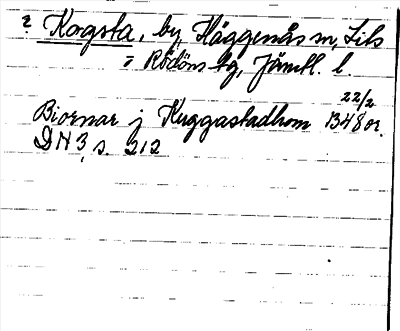 ? Kogsta, by, Häggenås sn, Lits
= Rödöns tg, Jämtl. l.
22/2
Biornar j Kuggastadhom 1348 or.
DN 3, s. 212